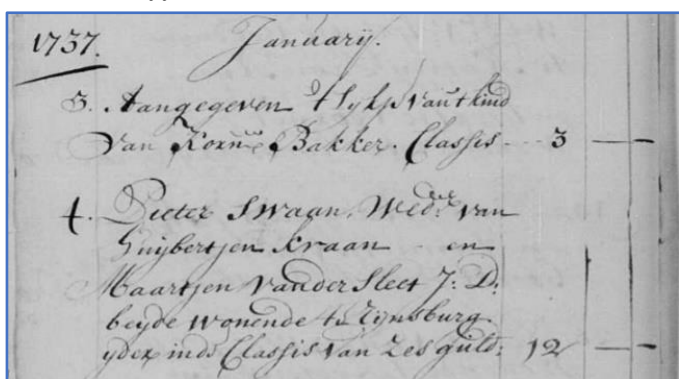 1737. January.
3. Aangegeven 't Lijk van 't kind
van Korn:s Bakker. Classis 3 —
4. Pieter Swaan. Wed:r van
Huijbertjen Kraan en
Maartjen vander Sleet J: D:
beyde wonende te Rijnsburg
yder in de Classis van Zes guld: 12 —